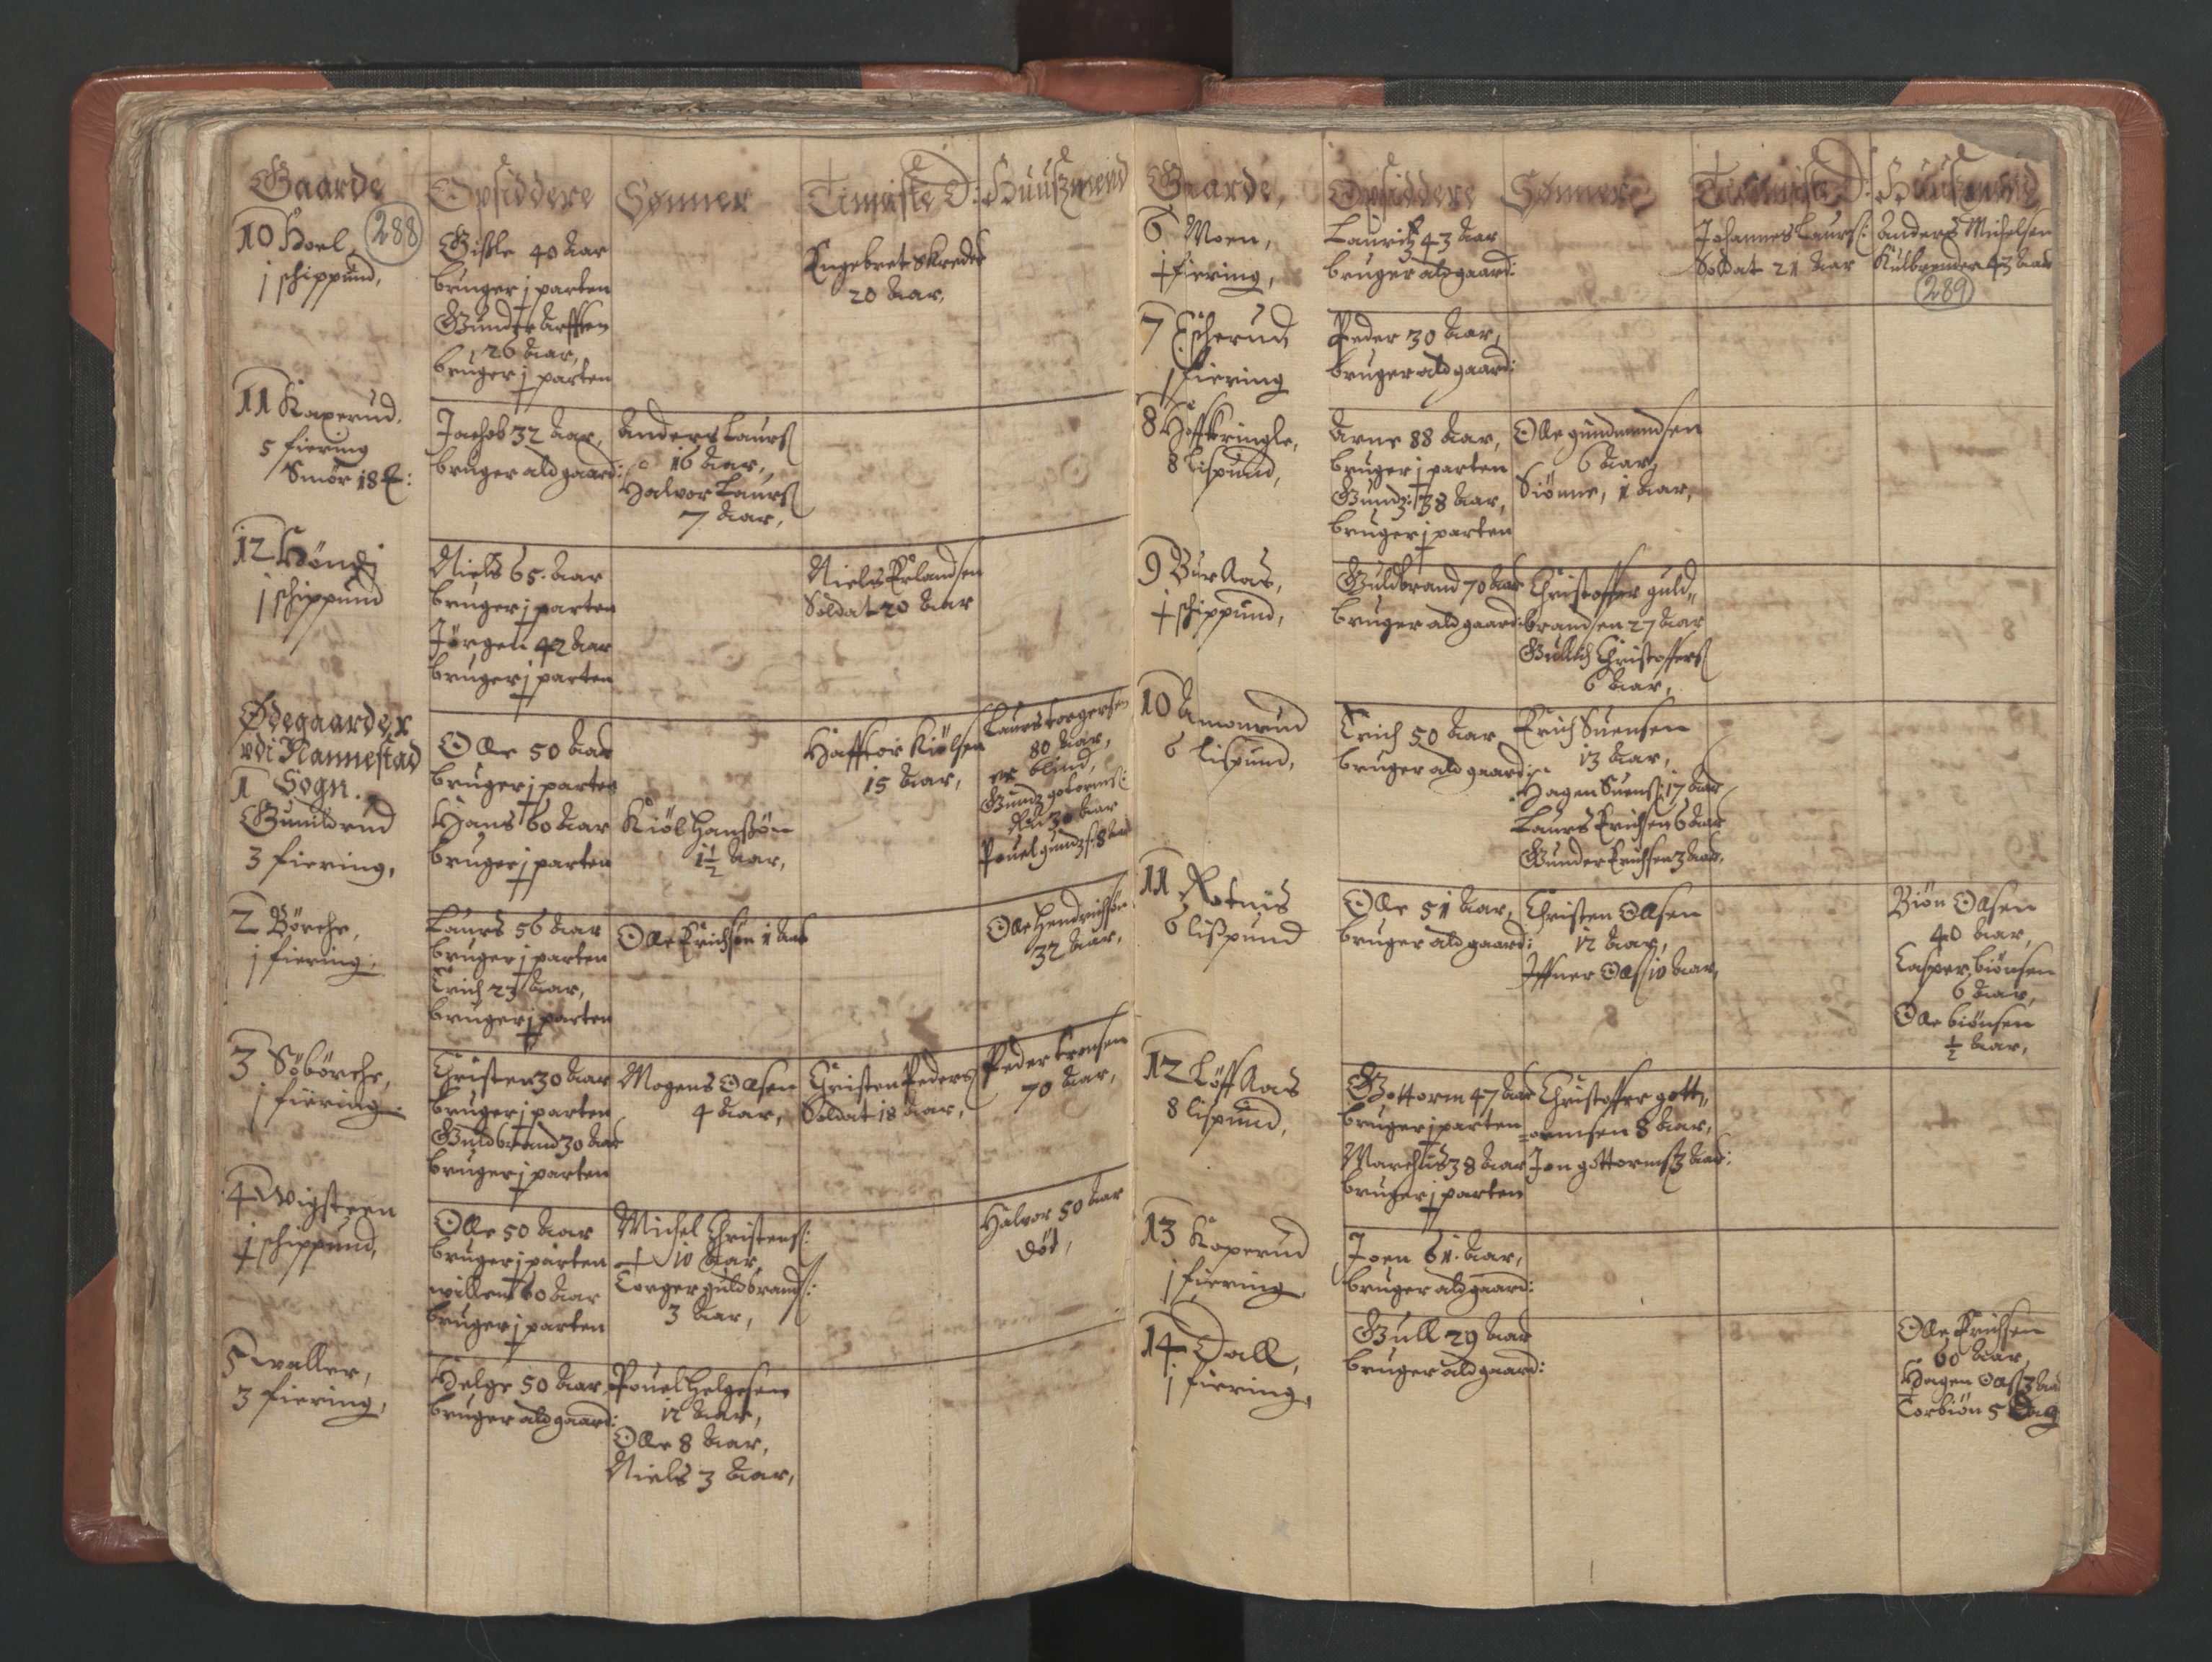 Gaarde Opsiddere Sønner Tienniste D: Huußmend
10 Hoel 288
j schippund,
Gisle 40 Aar
bruger ½ parten
Gunder
26 Aar,
bruger ½ parten
Engebret
20 Aar,
11 Kaxerud,
5 fiering
Smør 18
Jachob 32 Aar,
bruger ald gaard:
Anders Laurs
16 Aar,
Halvor Laurs
7 Aar,
12
j schippund
Niels 65. Aar
bruger ½ parten
Jørgen 42 Aar
bruger ½ parten
Niels Erlandsen
Soldat 20 Aar
Ødegaarder
vdi Nannestad
Sogn.
1
Gunildrud
3 fiering,
Olle 50 Aar
bruger ½ parten
Hans 60 Aar
bruger ½ parten
Kiøl Hanssøn
1½ Aar,
Haffuor Kiølsen
15 Aar,
Laurs Torgersen
80 Aar,
er blind,
Gundz
30 Aar
Pouel 8 Aar
2 Børche,
j fiering,
Laurs 56 Aar
bruger ½ parten
Erich 23 Aar,
bruger ½ parten
Olle Erichsen 1 Aar
Olle Hendrichsøn
32 Aar,
3 Søbørche,
j fiering.
Christen 30 Aar
bruger ½ parten
Guldbrand 30 Aar
bruger ½ parten
Mogens Olsen
4 Aar,
Christen Peders
Soldat 18 Aar,
Peder
70 Aar,
4 Wigsteen
½ schippund,
Olle 50 Aar
bruger ½ parten
willem 60 Aar
bruger ½ parten
Michel Christens:
10 Aar,
Torger guldbrands:
3 Aar,
Halvor 50 Aar
død,
5 waller,
3 fiering,
Helge 50 Aar
bruger ald gaard:
Pouel Helgesen
12 Aar,
Olle 8 Aar,
Niels 3 Aar,
Gaarde, Opsiddere Sønner Tienniste D: Huußmend
6 Moen,
½ fiering,
Lauritz 43 Aar
bruger ald gaard:
Johannes Laurs:
Soldat 21 Aar
Anders Michelsen
Kulbrender 43 Aar
289
7 Escherud,
j fiering
Peder 30 Aar,
bruger ald gaard:
8 Høffkringle,
8 lispund,
Arne 88 Aar,
bruger ½ parten
Gundz: 38 Aar,
bruger ½ parten
Olle gundmundsen
6 Aar,
Siønne, 1 Aar,
9 Bur Aas,
½ schippund,
Guldbrand 70 Aar
bruger ald gaard:
Christoffer guld„
brandsen 27 Aar
Gullich Christoffers
6 Aar,
10 Amonrud
6 lispund,
Erich 50 Aar
bruger ald gaard:
Erich Suensen
13 Aar,
Hagen Suens: 17 Aar
Laurs Erichsen 6 Aar
Gunder Erichsen 3 Aar,
11 Rotnis
6 lißpund
Olle 51 Aar,
bruger ald gaard:
Christen Olsen
12 Aar,
Iffuer Ols 10 Aar,
Biøn Olsen
40 Aar,
Casper biønsen
6 Aar,
Olle biønsen
½ Aar,
12 Løff Aas
8 lispund,
Gottorm 47 Aar
bruger ½ parten
Marchus 38 Aar
bruger ½ parten
Christoffer gott„
=ormsen 8 Aar,
Jon gottorms 3 Aar:
13 Kaxerud
j fiering,
Joen 61. Aar,
bruger ald gaard:
14 Dall,
j fiering,
Gull 29 Aar
bruger ald gaard:
Olle Erichsen
60 Aar,
Hagen Ols 3 Aar
Torbiøn 5 Dag